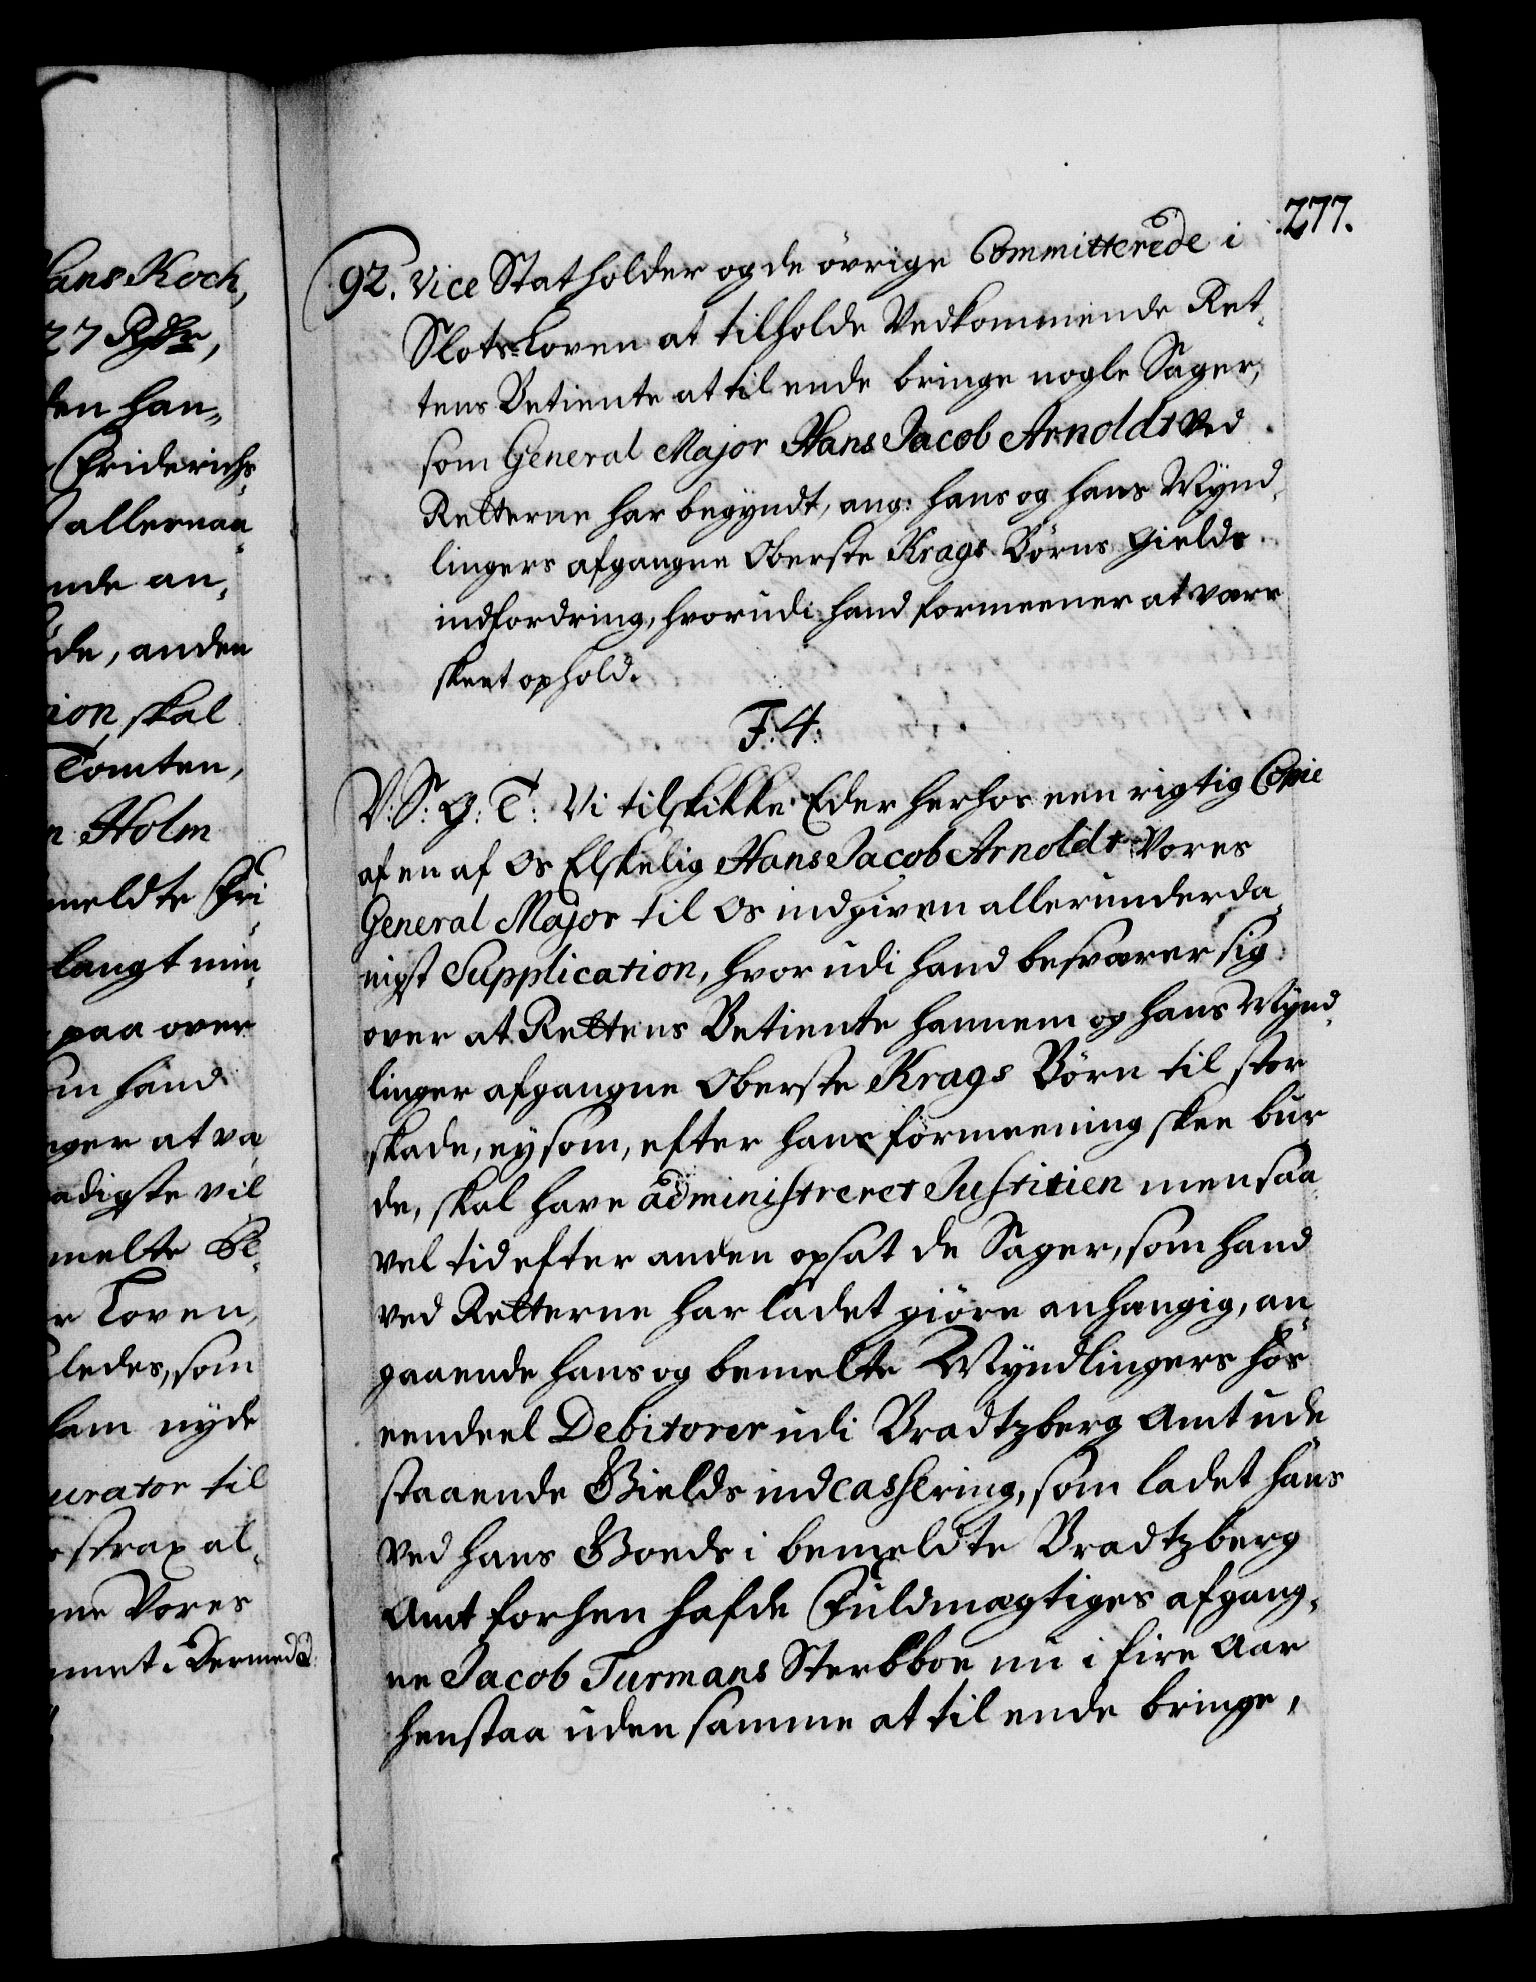 ans Koch,
27 Rdr,
den han„
Friderichs„
allernaa„
nde an„
de, anden
ion, skal
Tomten,
n Holm
meldte Fri„
langt min„
paa over
m hand
nger at va
adigste vil
melte Be„
r Loven,
ledes, som
lam nyde
urator til
strax al„
ne Vores
met. Dermed
277.
92. Vice Statholder og de övrige Committerede i
Slots-Loven at tilholde Vedkommende Ret„
tens Betiente at til ende bringe nogle Sager,
som General Major Hans Jacob Arnoldt ved
Retterne har begyndt, ang: hans og hans Mynd„
lingers afgangne Oberste Krags Börns Gields
indfordring, hvorudi hand formeener at være
skeet ophold.
F: 4:
V: S: G: T: Vi tilskikke Eder herhos een rigtig Copie
af en af Os Elskelig Hans Jacob Arnoldt Vores
General Major til Os indgiven allerunderda„
nigst Supplication, hvorudi hand besværer sig
over at Rettens Betiente hannem og hans Mynd„
linger afgangne Oberste Krags Börn til stor
skade, ey som, efter hans formeening skee bur„
de, skal have administreret Justitien men saa„
vel tid efter anden opsat de Sager, som hand
ved Retterne har ladet giöre anhængig, an„
gaaende hans og bemelte Myndlingers hos
eendeel Debitorer udi Bradtzberg Amt ude„
staaende Gields indcassering, som ladet hans
ved hans Goeds i bemeldte Bradtzberg
Amt forhen hafde Fuldmægtiges afgang„
ne Jacob Turmans Sterbboe nu i fire Aar
henstaa uden samme at til ende bringe,